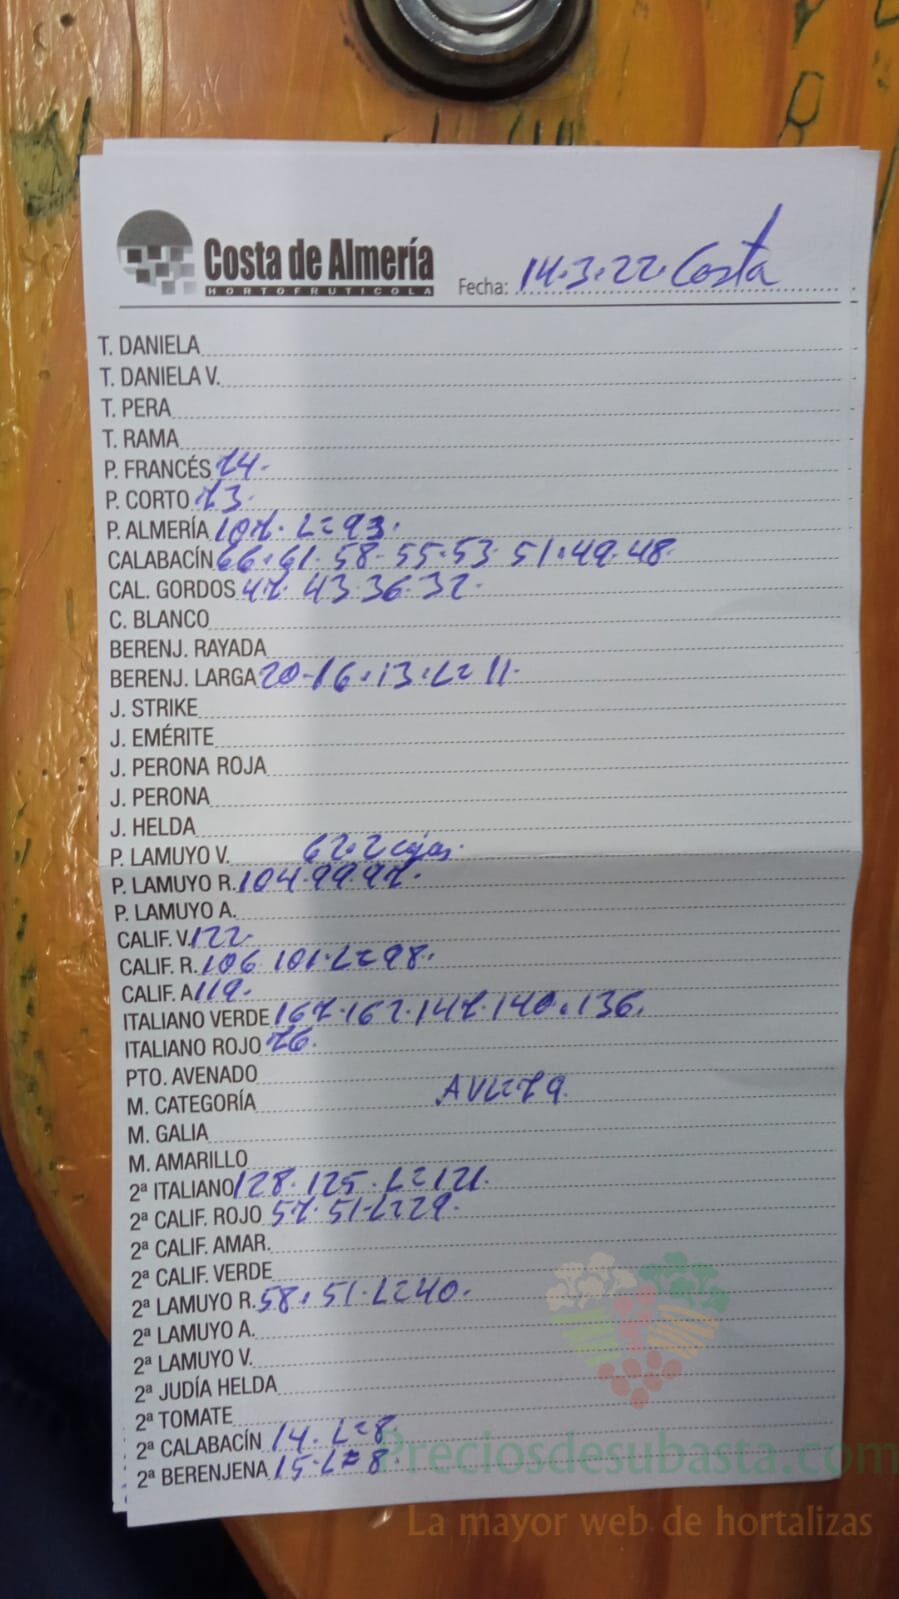 Costa de Almería
HORTOFRUTICOLA
Fecha: 14.3.22. Costa
T. DANIELA
T. DANIELA V.
T. PERA
T. RAMA
P. FRANCÉS 74.
P. CORTO 73.
P. ALMERÍA 107. L=93.
CALABACÍN 66.61.58.55.53.51.49.48.
CAL. GORDOS 47.43.36.32.
C. BLANCO
BERENJ. RAYADA
BERENJ. LARGA 20-16.13.L=11.
J. STRIKE
J. EMÉRITE
J. PERONA ROJA
J. PERONA
J. HELDA
P. LAMUYO V. 62.2 cajas.
P. LAMUYO R. 104.99.97.
P. LAMUYO A.
CALIF. V. 122.
CALIF. R. 106.101.L=98.
CALIF. A 119.
ITALIANO VERDE 167.162.147.140.136.
ITALIANO ROJO 76.
PTO. AVENADO
M. CATEGORÍA AVL=79.
M. GALIA
M. AMARILLO
2ª ITALIANO 128.125.L=121.
2ª CALIF. ROJO 57.51.L=29.
2ª CALIF. AMAR.
2ª CALIF. VERDE
2ª LAMUYO R. 58.51.L=40.
2ª LAMUYO A.
2ª LAMUYO V.
2ª JUDÍA HELDA
2ª TOMATE
2ª CALABACÍN 14.L=8
2ª BERENJENA 15.L=8.
Preciosdesubasta.com
La mayor web de hortalizas